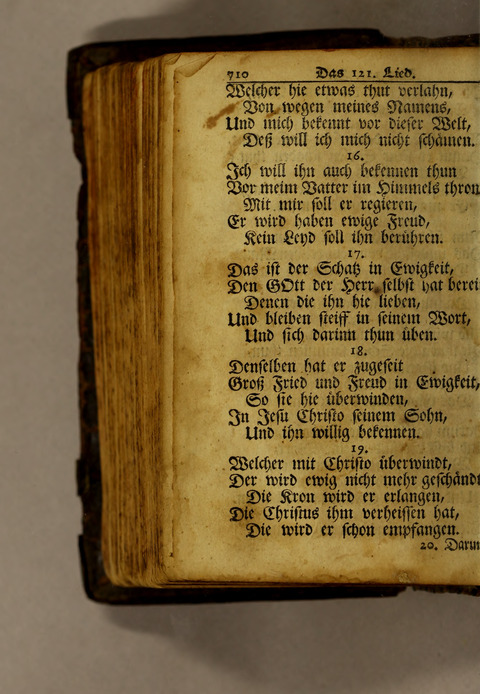 710 Das 121. Lied.
Welcher hie etwas thut verlahn,
Von wegen meines Namens,
Und mich bekennt vor dieser Welt,
Deß will ich mich nicht schämen.
16.
Ich will ihn auch bekennen thun
Vor meim Vatter im Himmels thron
Mit mir soll er regieren,
Er wird haben ewige Freud,
Kein Leyd soll ihn berühren.
17.
Das ist der Schatz in Ewigkeit,
Den GOtt der Herr selbst hat berei
Denen die ihn hie lieben,
Und bleiben steiff in seinem Wort,
Und sich darinn thun üben.
18.
Denselben hat er zugeseit
Groß Fried und Freud in Ewigkeit,
So sie hie überwinden,
In Jesu Christo seinem Sohn,
Und ihn willig bekennen.
19.
Welcher mit Christo überwindt,
Der wird ewig nicht mehr geschändt
Die Kron wird er erlangen,
Die Christus ihm verheissen hat,
Die wird er schon empfangen.
20. Darum